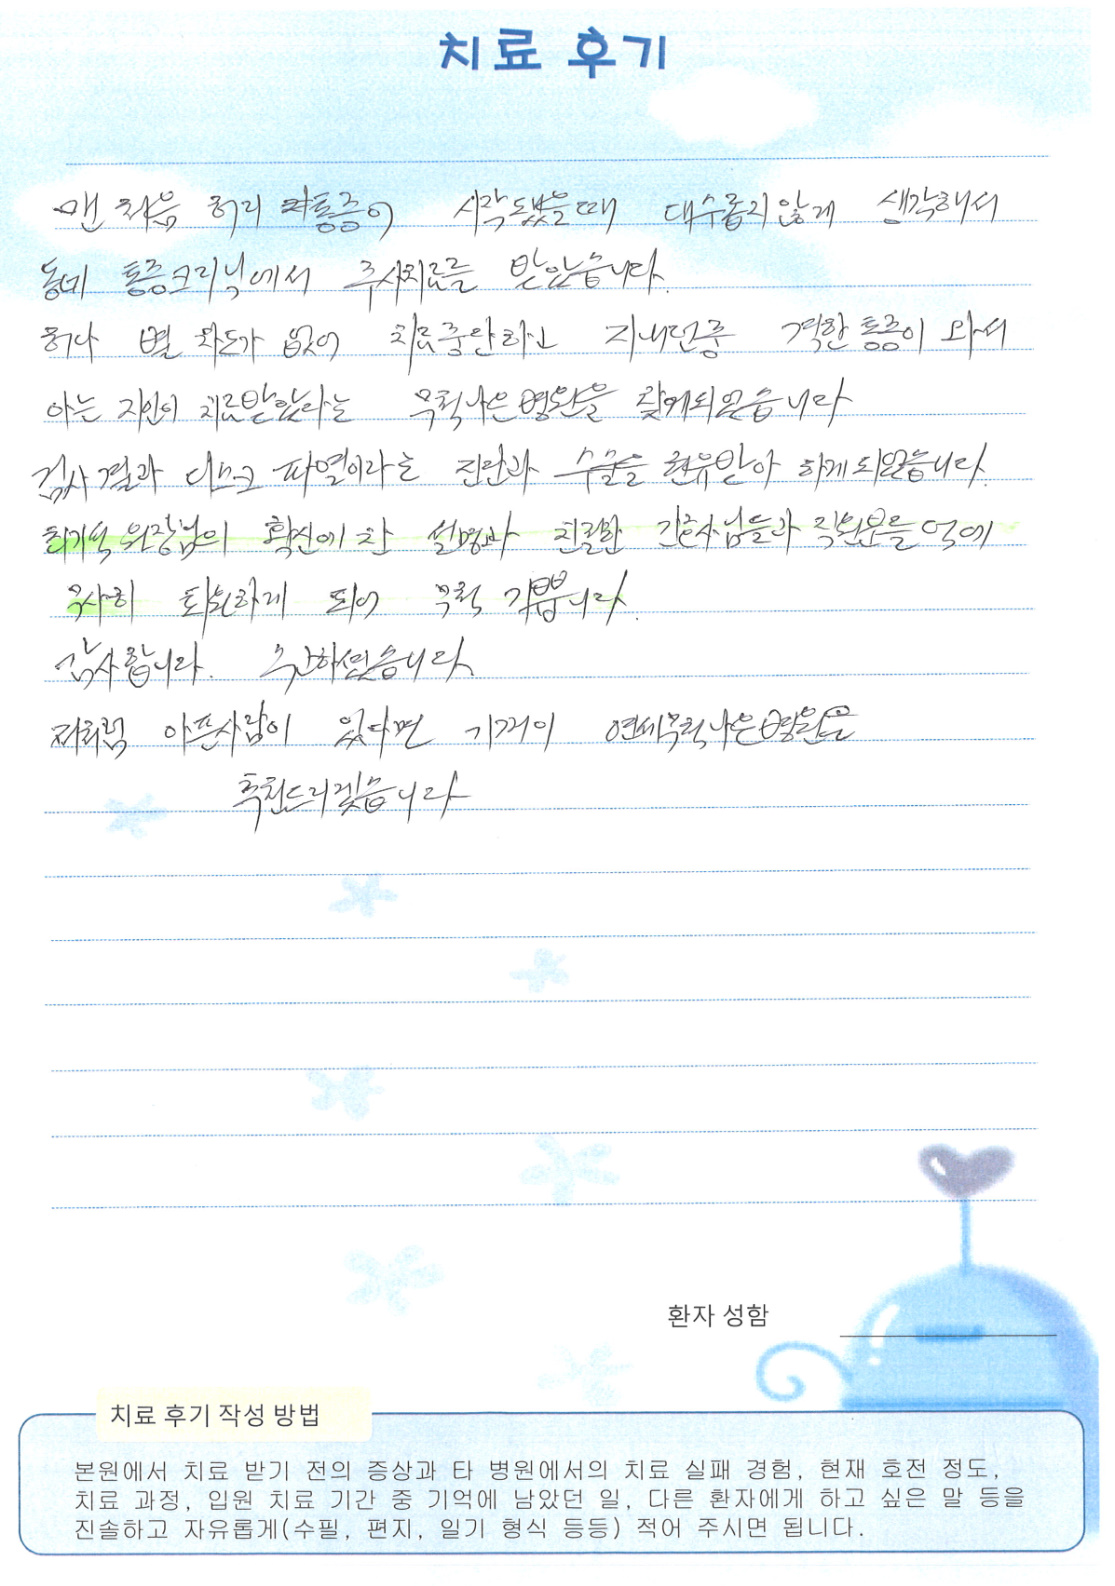 치료 후기
맨 처음 허리 통증이 시작됐을때 대수롭지않게 생각해서
동네 통증크리닉에서 주사치료를 받았습니다.
허나 별 차도가 없어 치료중단하고 지내던중 격한 통증이 와서
아는 지인이 치료받았다는 무척나은병원을 찾게되었습니다
검사결과 디스크 파열이라는 진단과 수술을 권유받아 하게되었습니다.
최기석 원장님의 확신에 찬 설명과 친절한 간호사님들과 직원분들 덕에
무사히 퇴원하게 되어 무척 기쁩니다.
감사합니다. 수고하셨습니다.
저처럼 아픈사람이 있다면 기꺼이 연세무척나은병원을
추천드리겠습니다
환자 성함
치료 후기 작성 방법
본원에서 치료 받기 전의 증상과 타 병원에서의 치료 실패 경험, 현재 호전 정도,
치료 과정, 입원 치료 기간 중 기억에 남았던 일, 다른 환자에게 하고 싶은 말 등을
진솔하고 자유롭게(수필, 편지, 일기 형식 등등) 적어 주시면 됩니다.